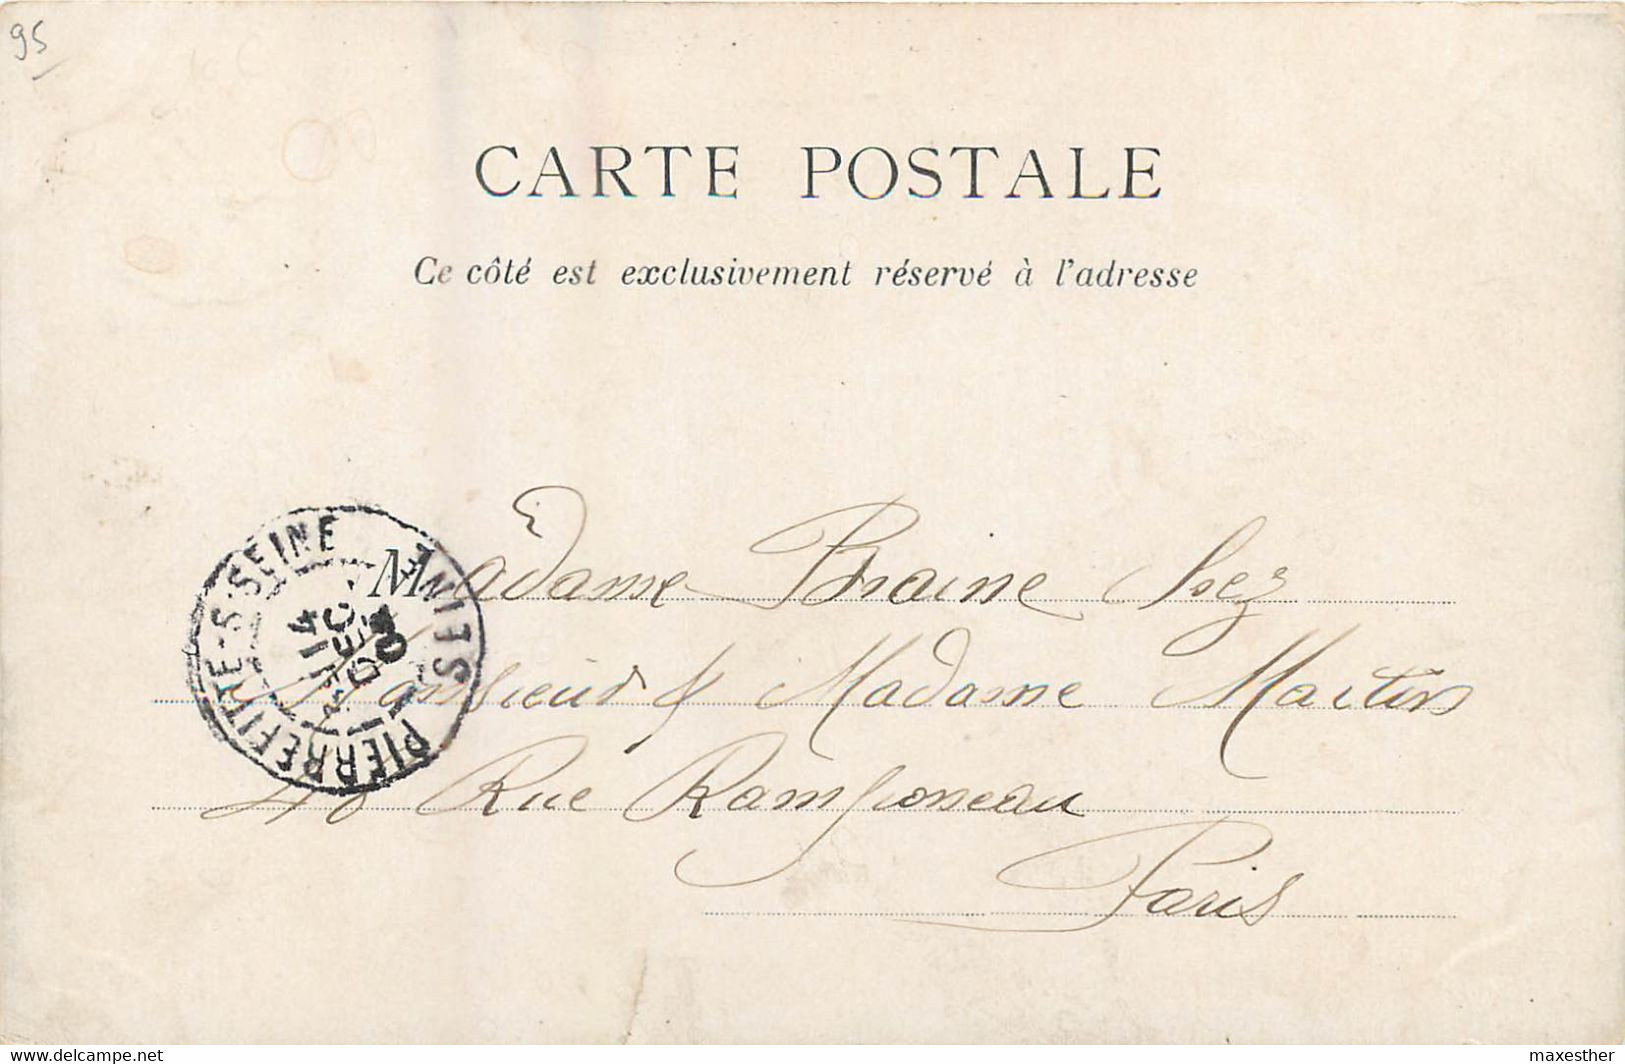 95
CARTE POSTALE
Ce côté est exclusivement réservé à l'adresse
Madame Braine chez
Monsieur & Madame Martin
40 Rue Ramponeau
Paris
PIERREFITTE-S-SEINE SEINE
14
DEC
04
www.delcampe.net
maxesther